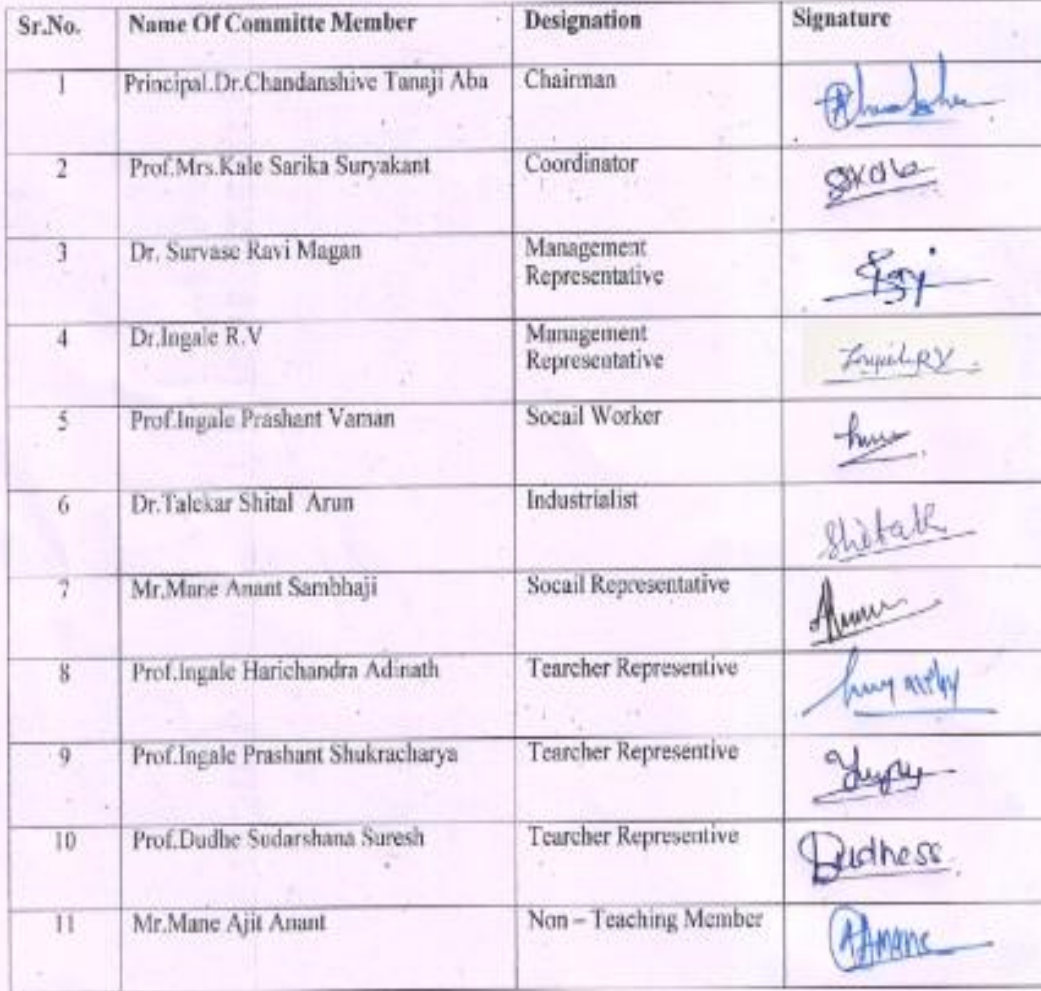 Sr.No. Name Of Committe Member Designation Signature
1 Principal.Dr.Chandanshive Tanaji Aba Chairman
2 Prof.Mrs.Kale Sarika Suryakant Coordinator
3 Dr. Survase Ravi Magan Management
Representative
4 Dr.Ingale R.V Management
Representative
5 Prof.Ingale Prashant Vaman Socail Worker
6 Dr.Talekar Shital Arun Industrialist
7 Mr.Mane Anant Sambhaji Socail Representative
8 Prof.Ingale Harichandra Adinath Tearcher Representive
9 Prof.Ingale Prashant Shukracharya Tearcher Represenitive
10 Prof.Dudhe Sudarshana Suresh Tearcher Representive
Dudhess
11 Mr.Mane Ajit Anant Non – Teaching Member
AAmane